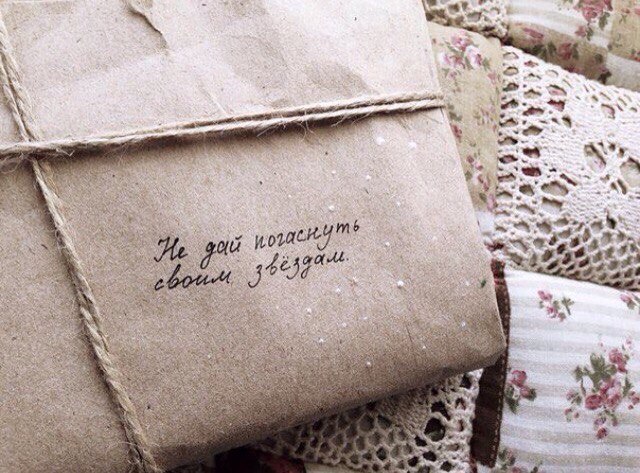 Не дай погаснуть
своим звёздам.